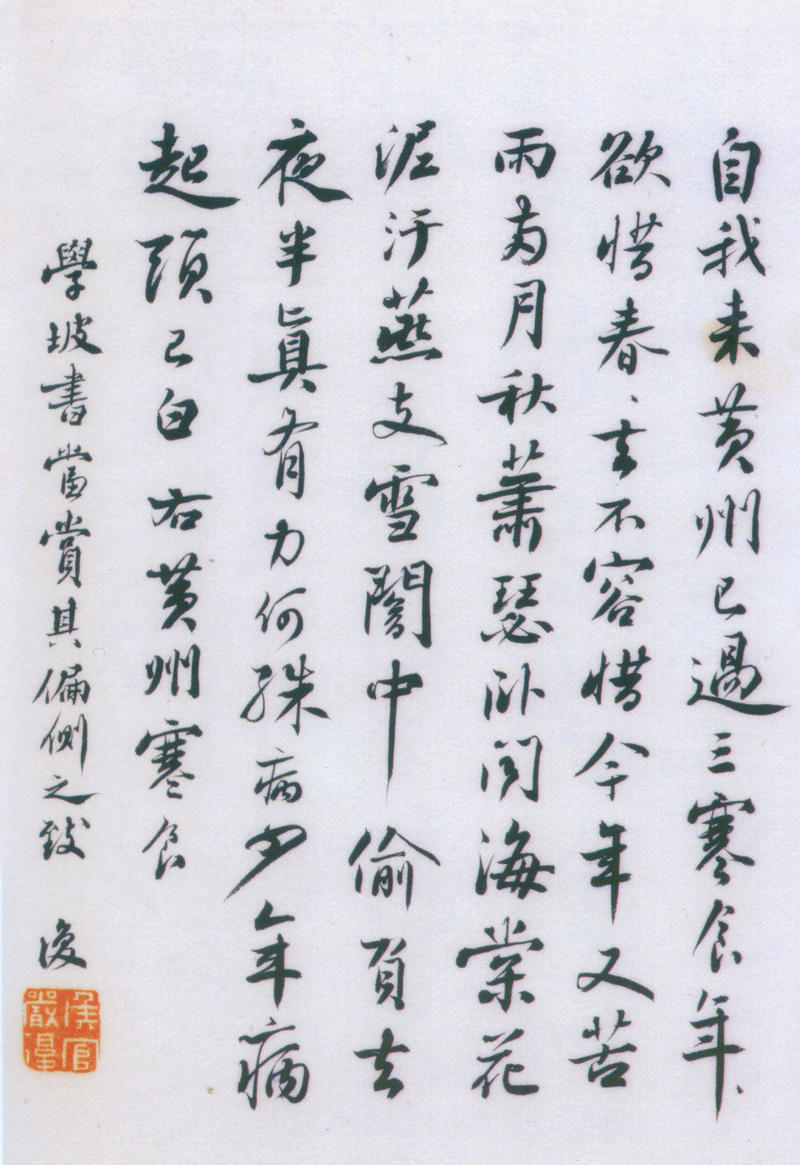 自我来黄州已過三寒食年、
欲惜春、去不容惜今年又苦
雨兩月秋蕭瑟卧聞海棠花
泥汙燕支雪闇中偷負去
夜半眞有力何殊病少年病
起頭已白右黄州寒食
學坡書當賞其偏側之致 復
侯官
嚴復